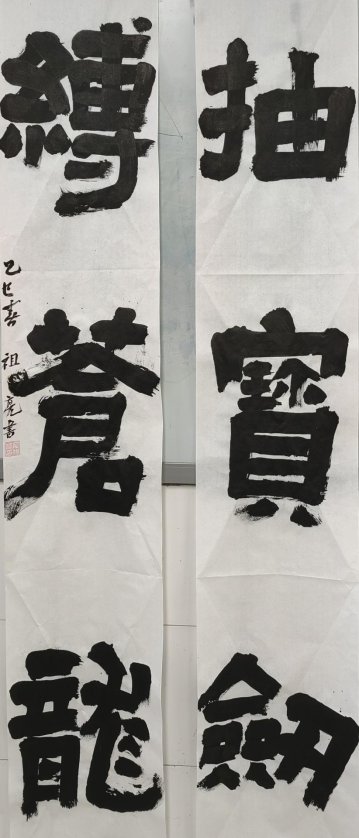 抽寶劔
縛蒼龍
乙巳春 祖亮書